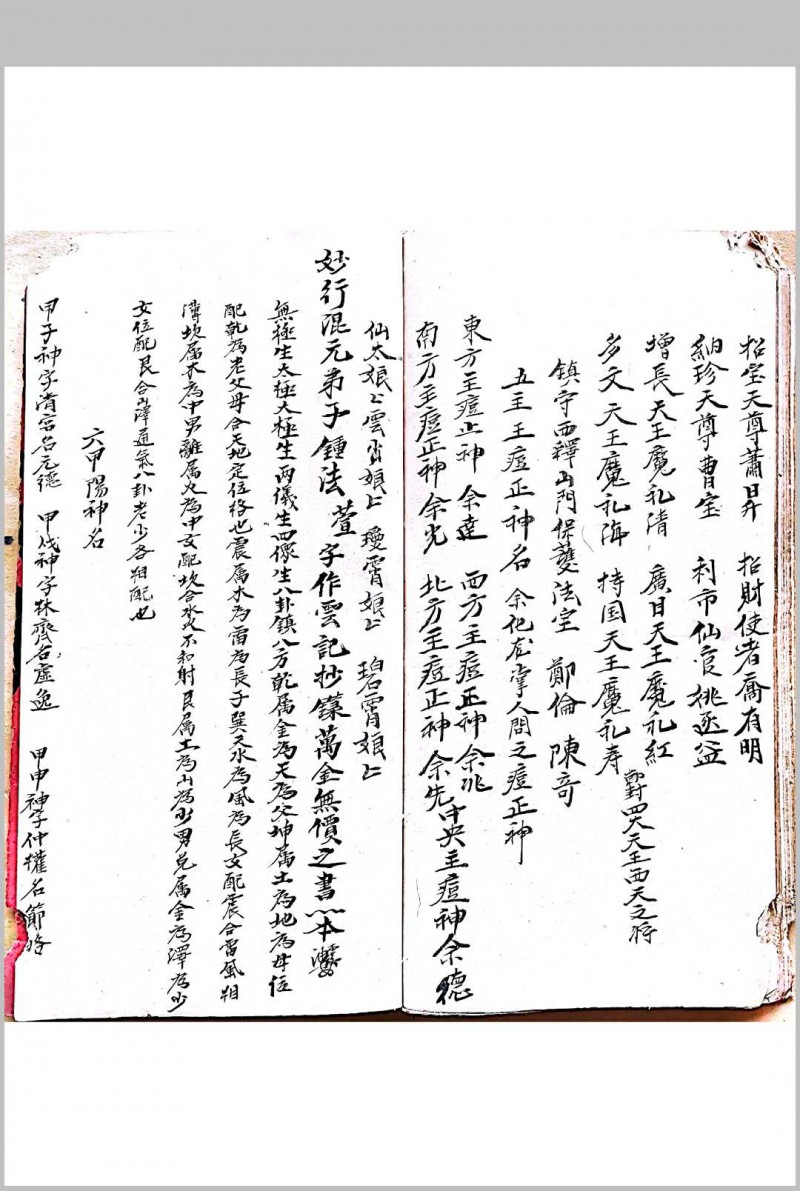 招宝天尊蕭昇　招財使者喬有明
納珍天尊曹宝　利市仙官姚迩益
增長天王魔礼清　廣目天王魔礼紅
多文天王魔礼海　持国天王魔礼寿
封四大天王西天之将
鎮守西釋山門保護法宝　鄭倫　陳奇
五主王痘正神名　余化龙掌人間之痘正神
東方主痘正神余達　西方主痘正神余兆
南方主痘正神余光　北方主痘正神余先　中央主痘神余德
仙太娘々雲肖娘々　瓊霄娘々　碧霄娘々
妙行混元弟子鍾法萱字作雲記抄錄萬金無價之書
無極生太極太極生両儀生四像生八卦鎮八方乾属金為天為父坤属土為地為母位
配乾為老父母合天地定位格也震属木為雷為長子巽天水為風為長女配震合雷風相
薄坎属水為中男離属火為中女配坎合水火不和射艮属土為山為少男兌属金為澤為少
女位配艮合山澤通氣八卦老少各相配也
六甲陽神名
甲子神字清宮名元德　甲戌神字林齊名虛逸　甲申神字仲權名節